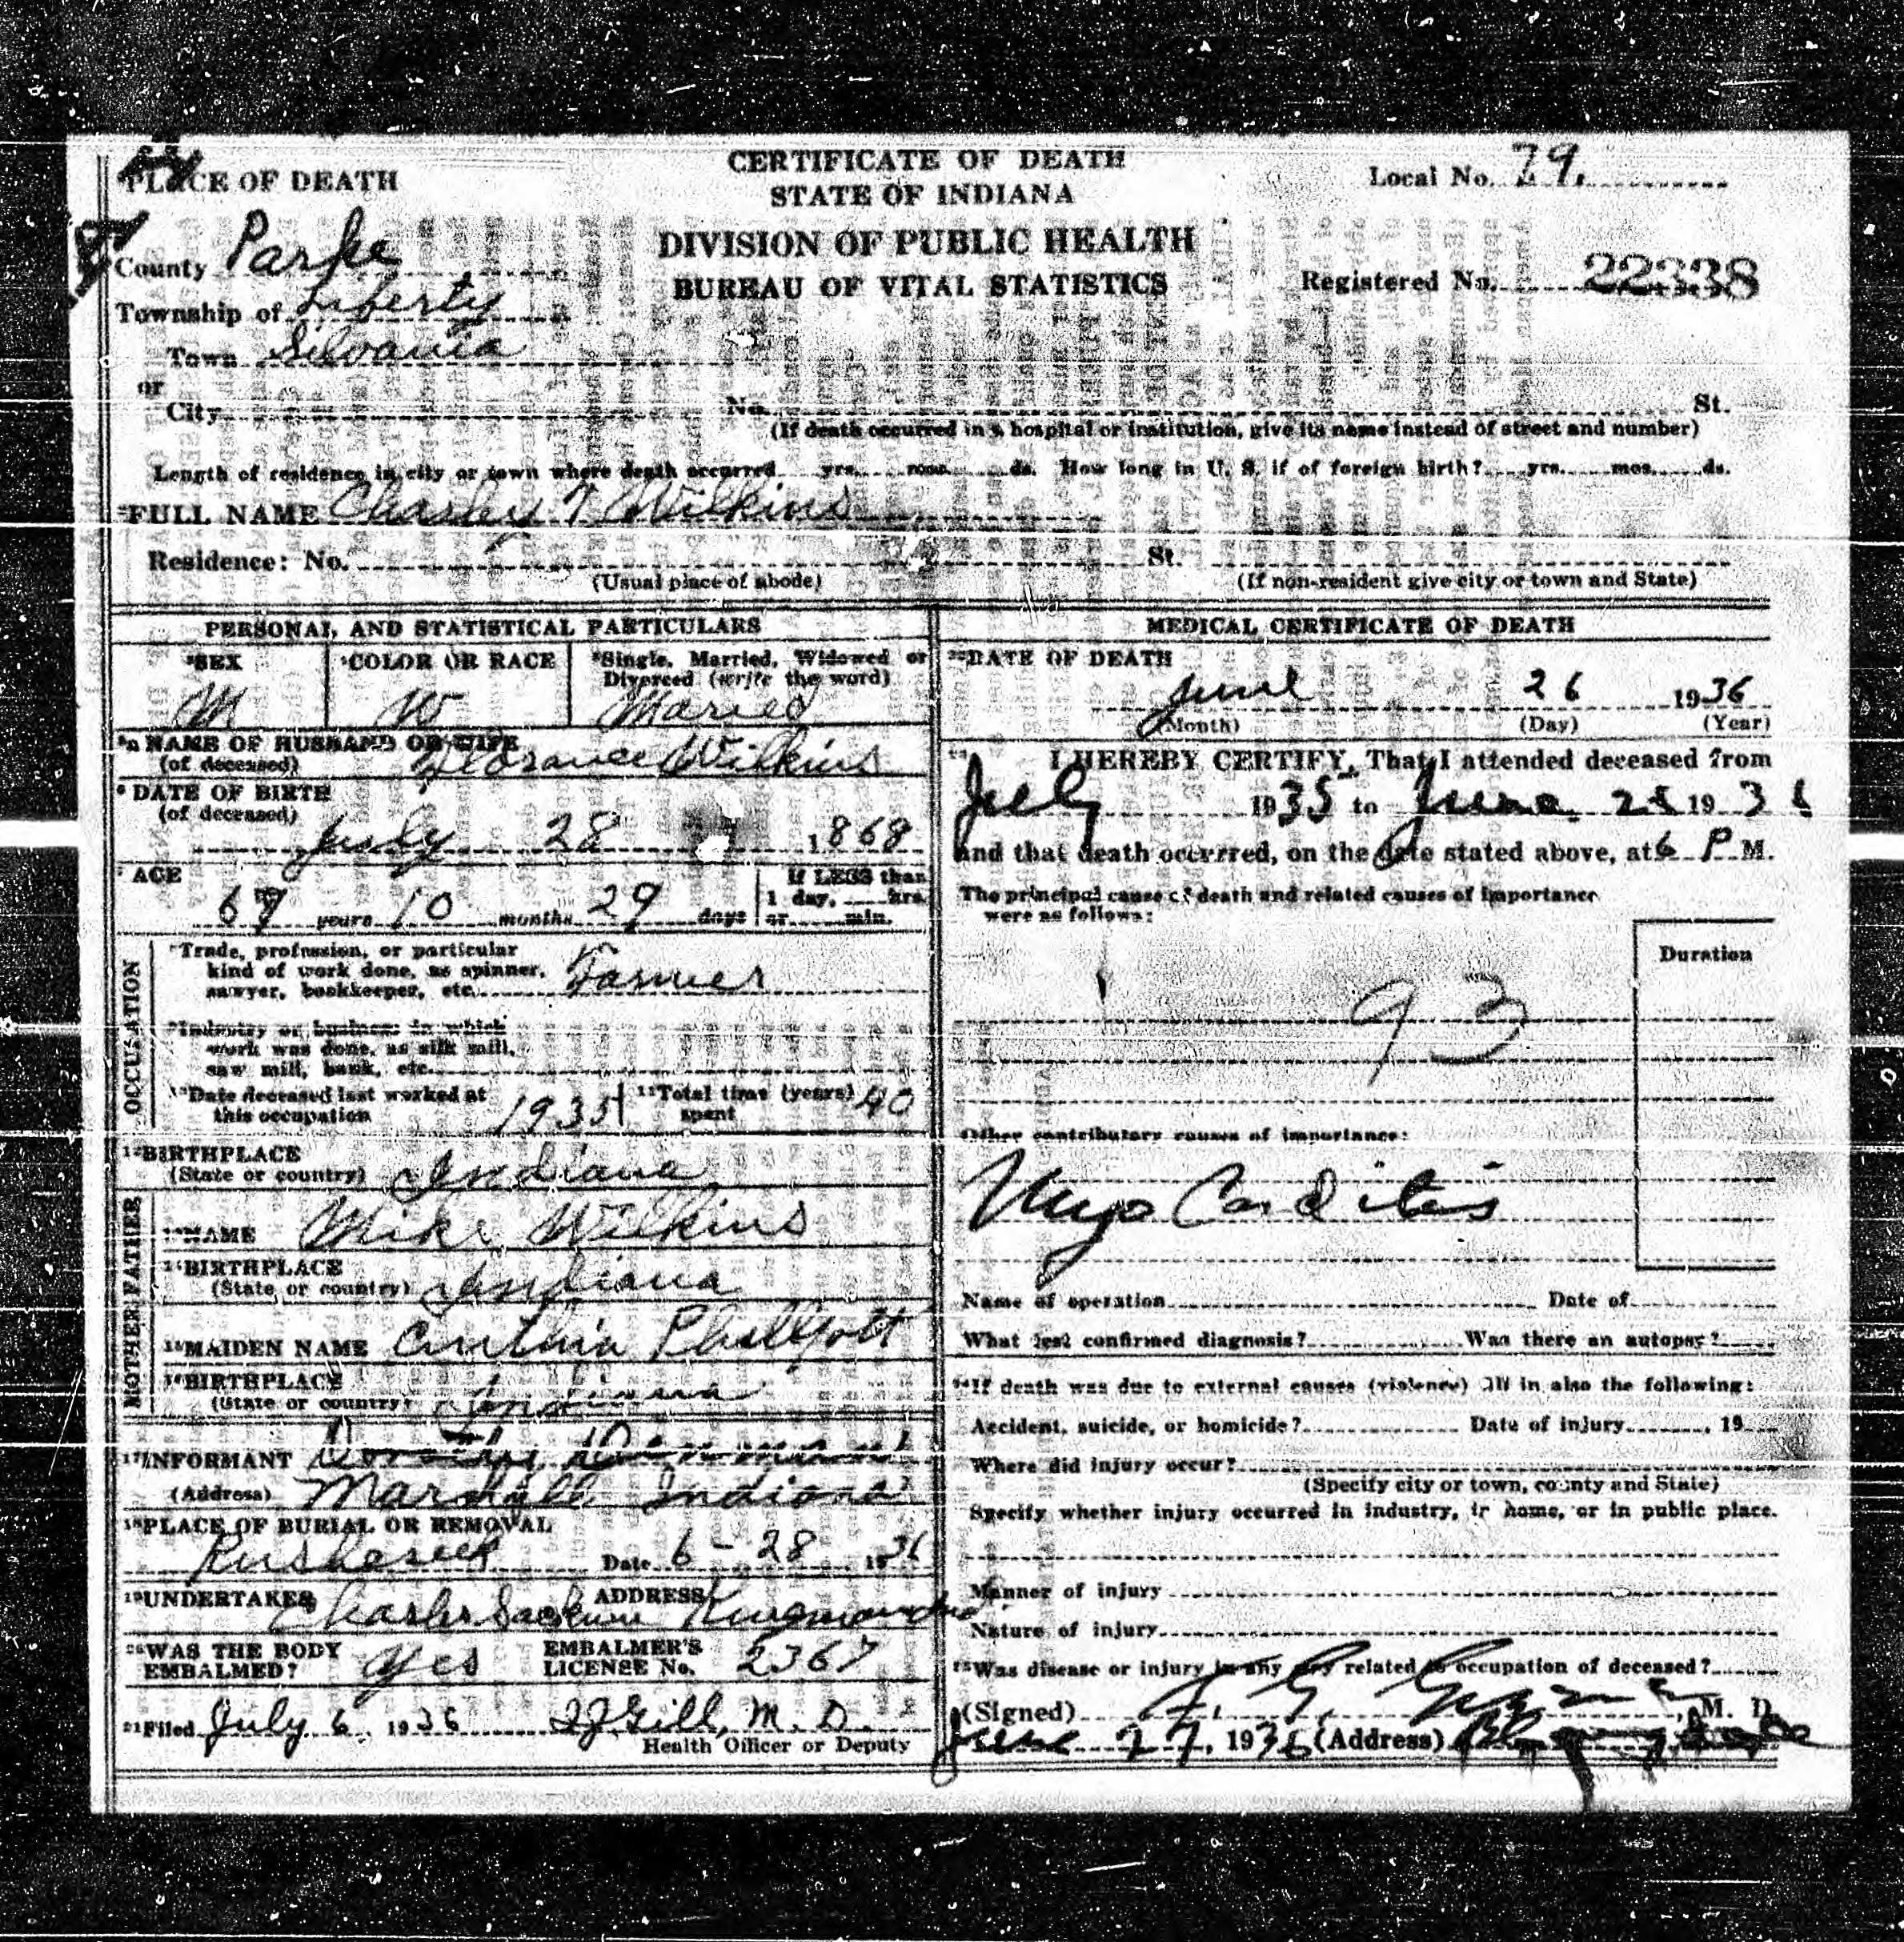 CERTIFICATE OF DEATH
STATE OF INDIANA
DIVISION OF PUBLIC HEALTH
BUREAU OF VITAL STATISTICS
Local No. 79.
Registered No. 22338
PLACE OF DEATH
County Parke
Township of Liberty
Town Silvania
or
City No. St.
(If death occurred in a hospital or institution, give its name instead of street and number)
Length of residence in city or town where death occurred yrs. mos. ds. How long in U. S. if of foreign birth? yrs. mos. ds.
FULL NAME Charley T Wilkins
Residence: No. St.
(Usual place of abode) (If non-resident give city or town and State)
PERSONAL AND STATISTICAL PARTICULARS
SEX COLOR OR RACE Single, Married, Widowed or
Divorced (write the word)
M W Maried
NAME OF HUSBAND OR WIFE
(of deceased) Florance Wilkins
DATE OF BIRTH
(of deceased)
July 28 1868
AGE If LESS than
67 years 10 months 29 days 1 day, hrs.
or min.
OCCUPATION
Trade, profession, or particular
kind of work done, as spinner,
sawyer, bookkeeper, etc. Farmer
Industry or business in which
work was done, as silk mill,
saw mill, bank, etc.
Date deceased last worked at
this occupation 1935
Total time (years)
spent 40
BIRTHPLACE
(State or country) Indiana
FATHER
NAME Mike Wilkins
BIRTHPLACE
(State or country) Indiana
MOTHER
MAIDEN NAME Cinthia
BIRTHPLACE
(State or country) Indiana
INFORMANT
(Address) Marshall Indiana
PLACE OF BURIAL OR REMOVAL
Date 6 - 28 1936
UNDERTAKER ADDRESS
WAS THE BODY
EMBALMED? Yes
EMBALMER'S
LICENSE No. 2367
Filed July 6, 1936 Gill, M. D.
Health Officer or Deputy
MEDICAL CERTIFICATE OF DEATH
DATE OF DEATH
June 26 1936
(Month) (Day) (Year)
I HEREBY CERTIFY, That I attended deceased from
July 1935 to June 1936
and that death occurred, on the date stated above, at 6 P M.
The principal cause of death and related causes of importance
were as follows:
Duration
93
Other contributory causes of importance:
Myo Carditis
Name of operation Date of
What test confirmed diagnosis? Was there an autopsy?
If death was due to external causes (violence) fill in also the following:
Accident, suicide, or homicide? Date of injury , 19
Where did injury occur?
(Specify city or town, county and State)
Specify whether injury occurred in industry, in home, or in public place.
Manner of injury
Nature of injury
Was disease or injury in any way related to occupation of deceased?
(Signed) , M. D.
June 27, 1936 (Address)